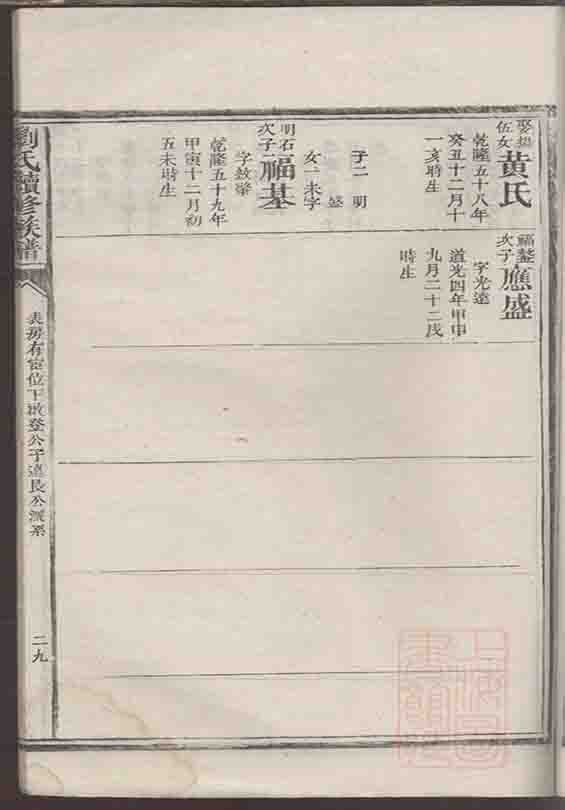 娶趙
伍女
黄氏
乾隆五十八年
癸丑十二月十
一亥時生
子二 明
盛
女一未字
明石
次子
福基
字敘肇
乾隆五十九年
甲寅十二月初
五未時生
福鏊
次子
應盛
字光遠
道光四年甲申
九月二十二戌
時生
劉氏續修族譜
表房有宦位下啟登公子道長公派系
二九
上海圖
書館藏